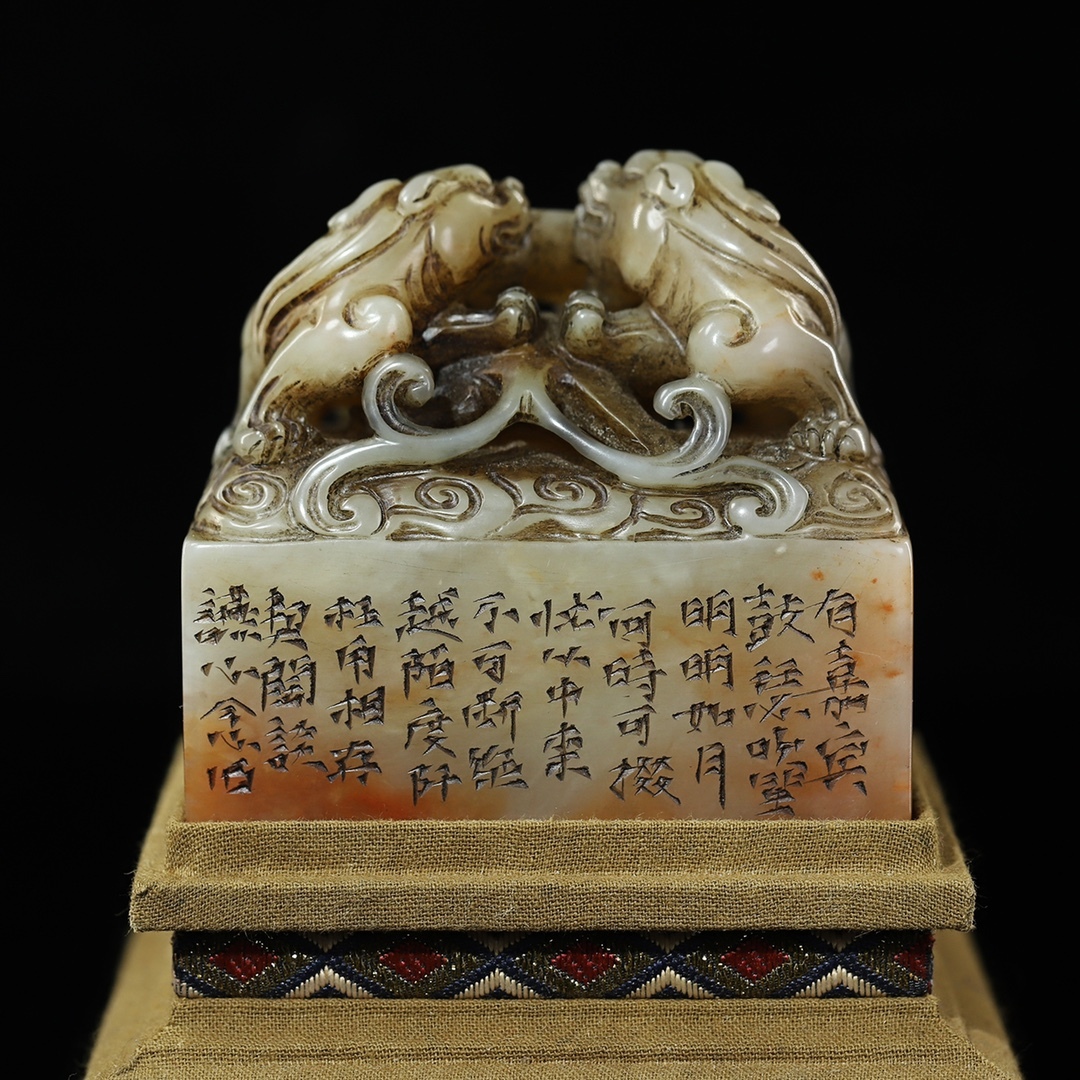 有嘉宾
鼓瑟吹笙
明明如月
何時可掇
忧从中来
不可断絕
越陌度阡
枉用相存
契闊談
讌心念旧